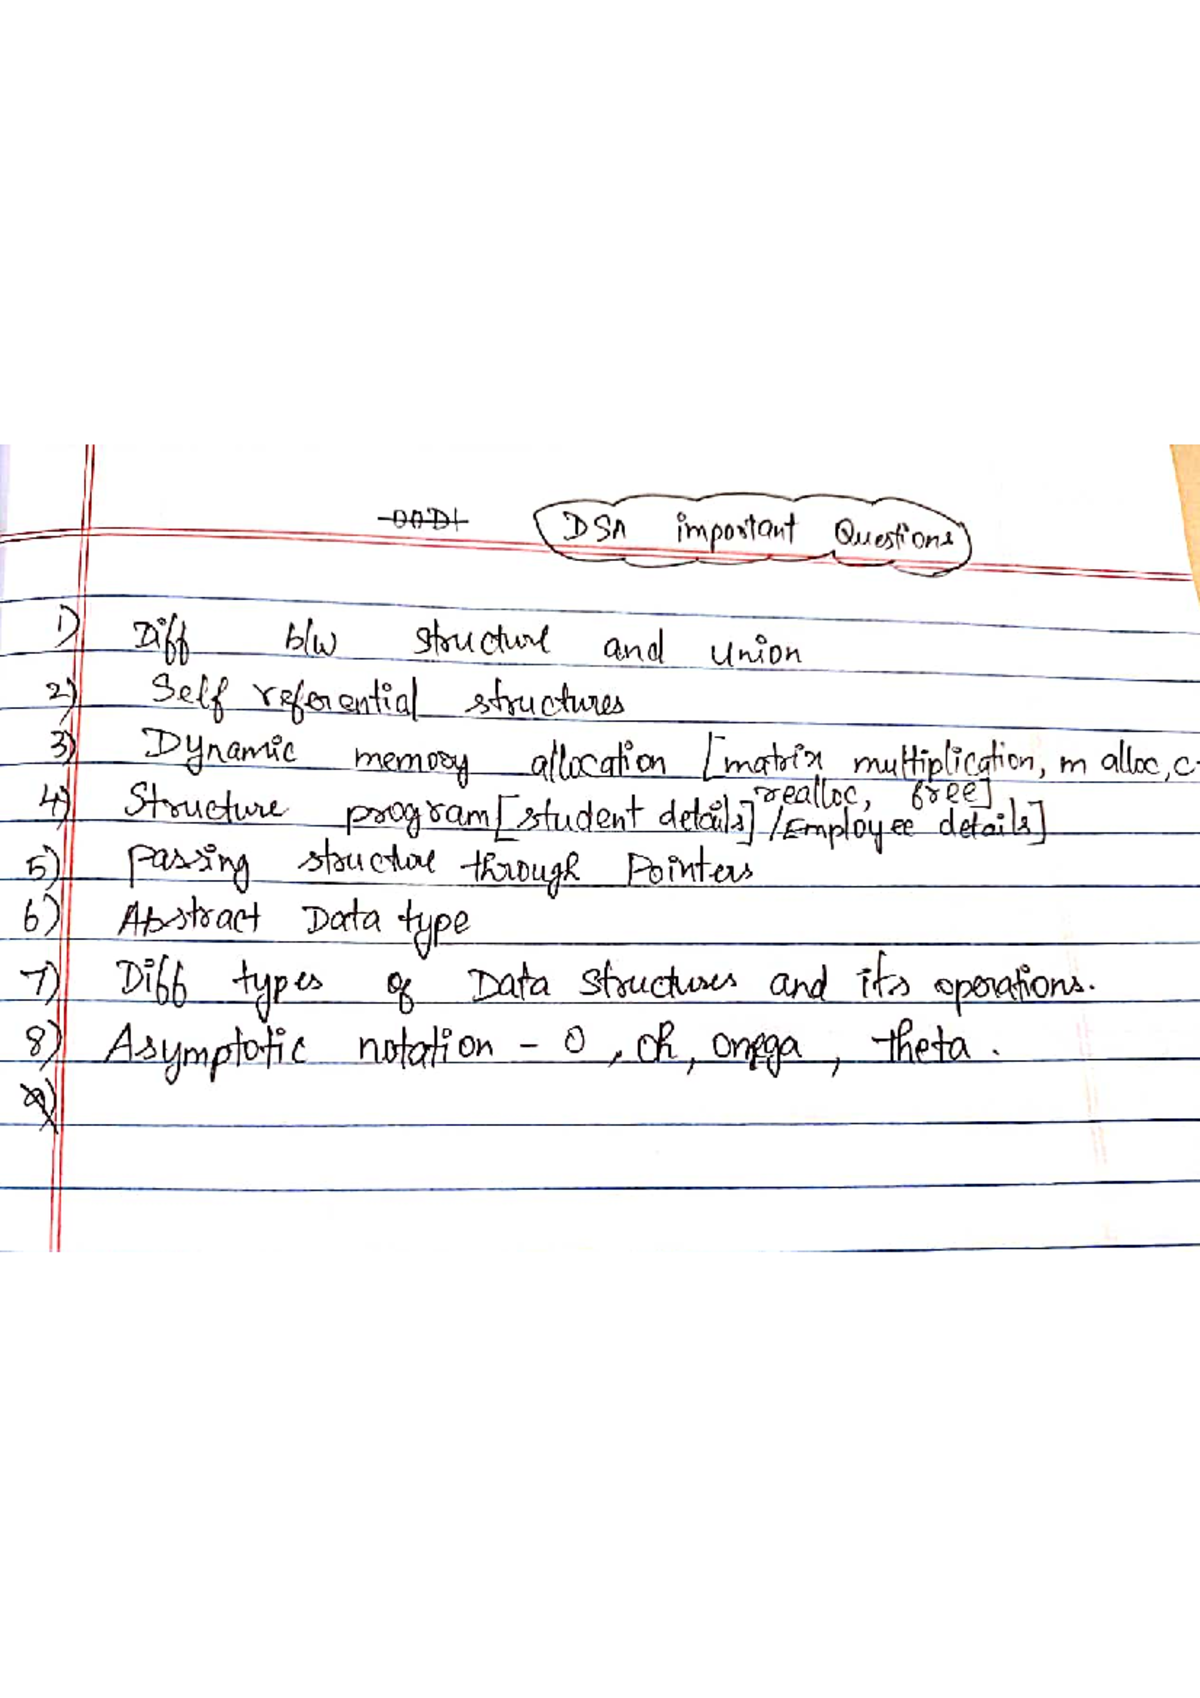 DSA important Questions
1) Diff b/w structure and union
2) Self referential structures
3) Dynamic memory allocation [matrix multiplication, m alloc, c-
realloc, free]
4) Structure program [student details] / Employee details]
5) Passing structure through Pointers
6) Abstract Data type
7) Diff types of Data structures and its operations.
8) Asymptotic notation - O, omega, theta.
9)